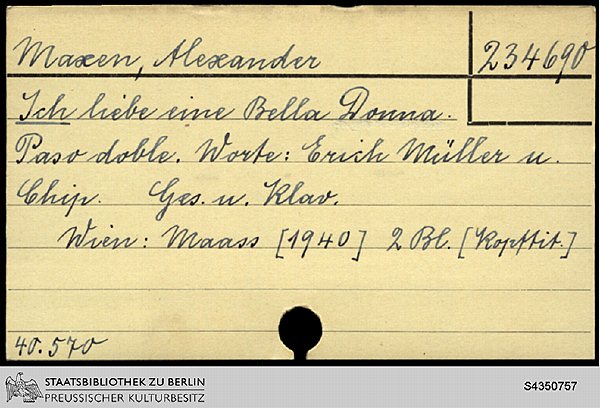 Maxen, Alexander 234690
Ich liebe eine Bella Donna.
Paso doble. Worte: Erich Müller u.
Chip. Ges. u. Klav.
Wien: Maass [1940] 2 Bl. [Kopftit.]
40.570
STAATSBIBLIOTHEK ZU BERLIN
PREUSSISCHER KULTURBESITZ
S4350757